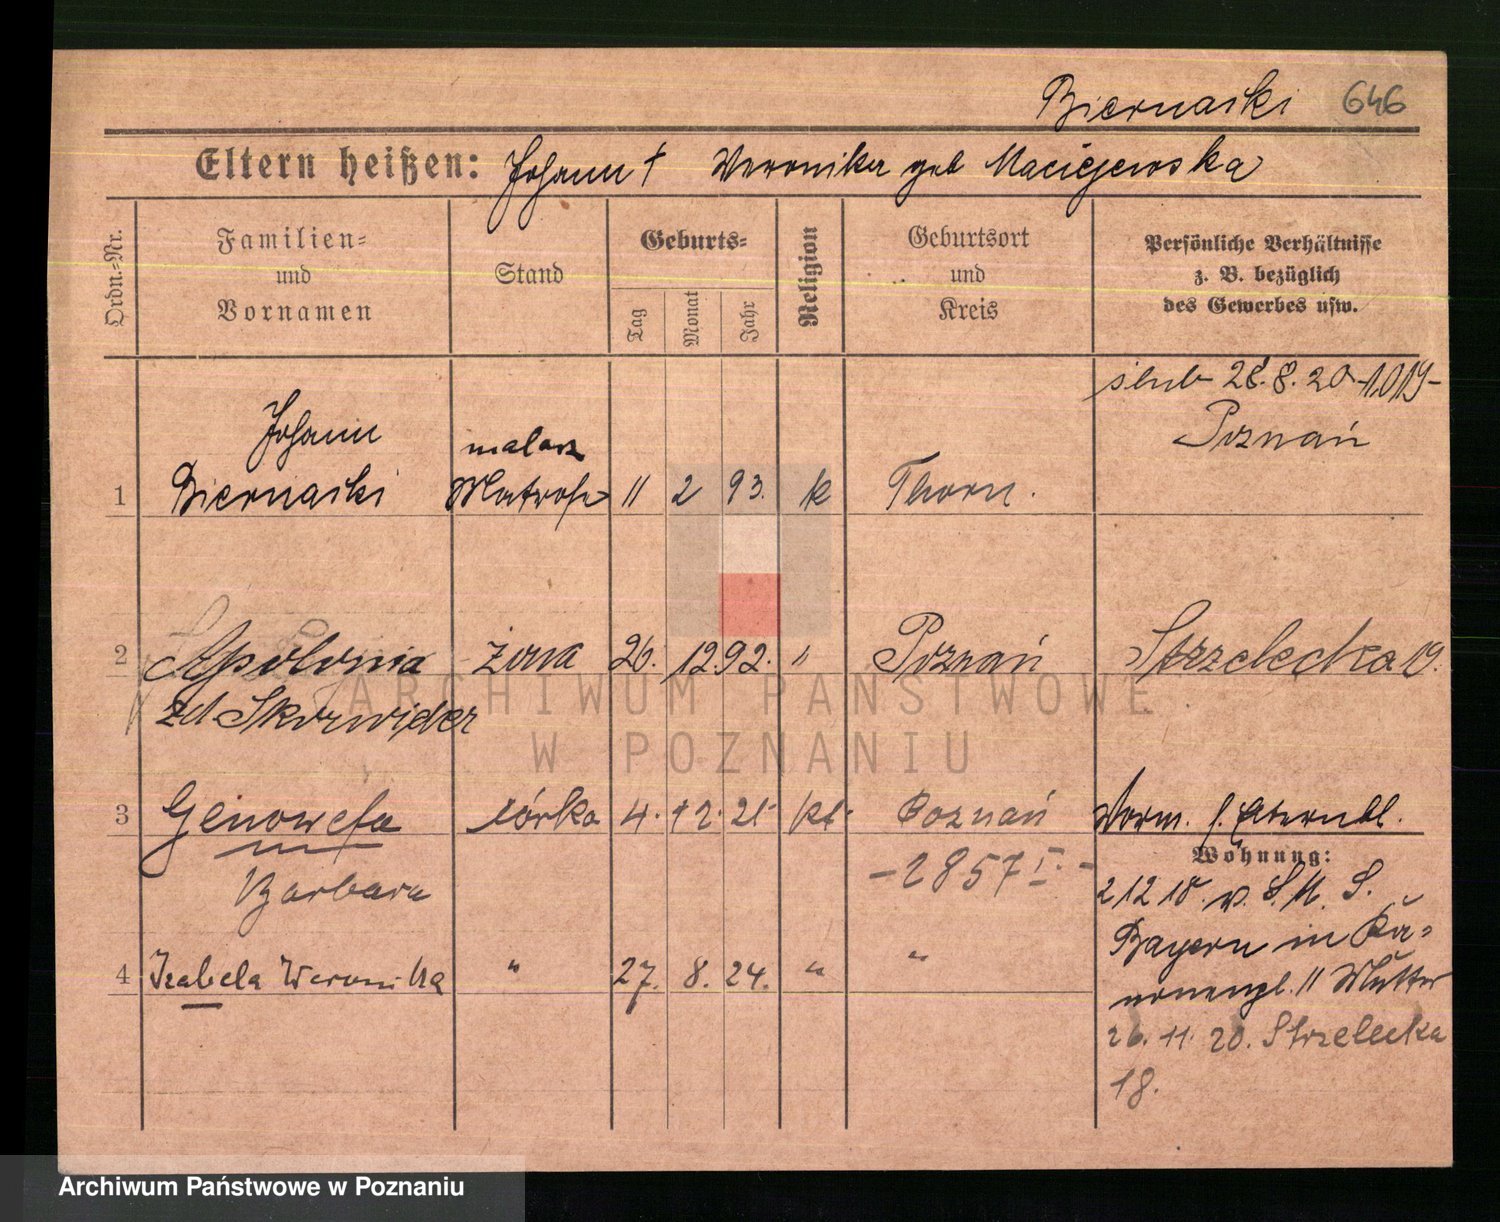 Biernaski 646
Eltern heißen: Johann † Weronika geb Maciejewska
Ordn.-Nr.
Familien-
und
Vornamen
Stand
Geburts-
Tag
Monat
Jahr
Religion
Geburtsort
und
Kreis
Persönliche Verhältnisse
z. B. bezüglich
des Gewerbes usw.
ślub 28.8.20 -1019-
Poznań
Johann
malarz
1 Biernaski Matrose 11 2 93. k Thorn.
2 Apolonia żona 26. 12 92. " Poznań Strzelecka 19.
zd Skorwider
3 Genowefa córka 4. 12. 21 kt. Poznań Vorm. s. Elternbl.
Barbara
-2857 I.-
Wohnung:
2 12 18. v. S.M.S.
Bayern in Ka-
nonenpl. 11 Mutter
4 Izabela Weronika " 27. 8. 24. " "
26. 11. 20. Strzelecka
18.
ARCHIWUM PAŃSTWOWE
W POZNANIU
Archiwum Państwowe w Poznaniu